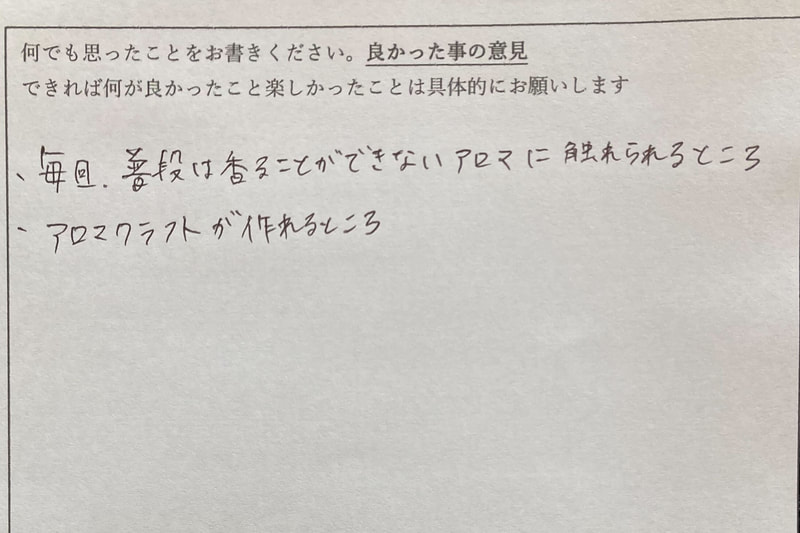 何でも思ったことをお書きください。良かった事の意見
できれば何が良かったこと楽しかったことは具体的にお願いします
、毎回、普段は香ることができないアロマに触れられるところ
、アロマクラフトが作れるところ